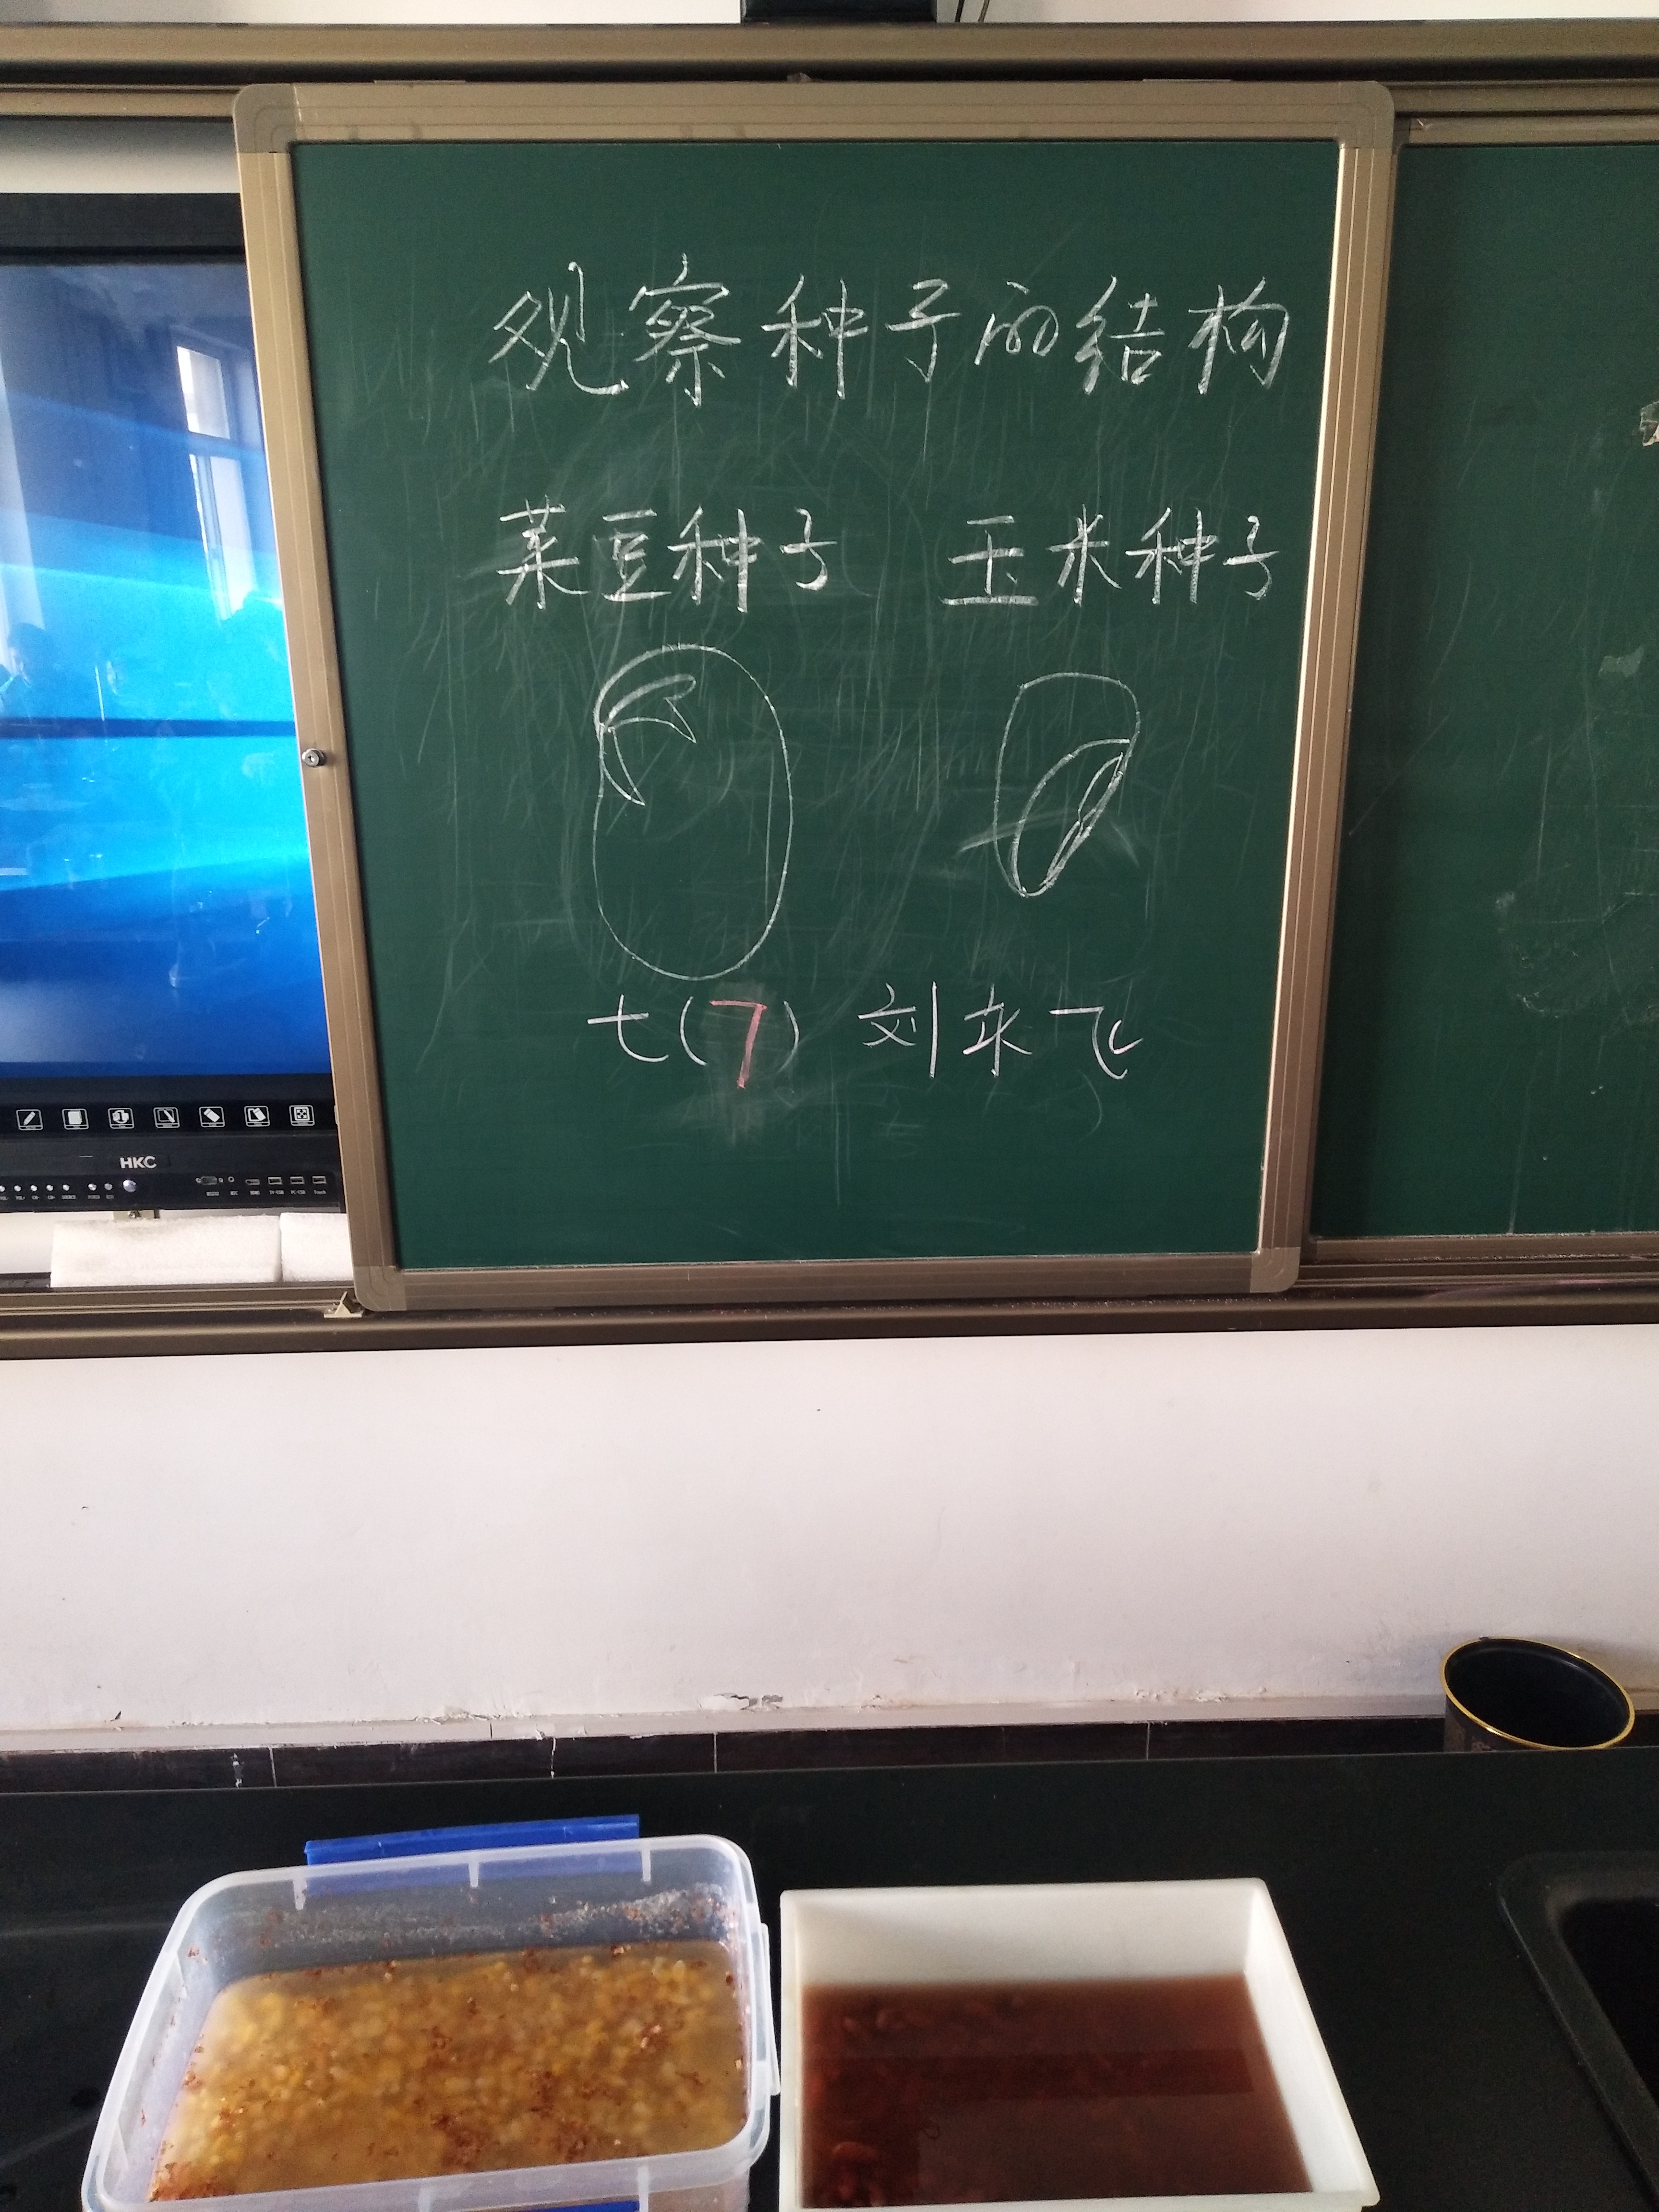 观察种子的结构
菜豆种子 玉米种子
七(7) 刘来飞
HKC